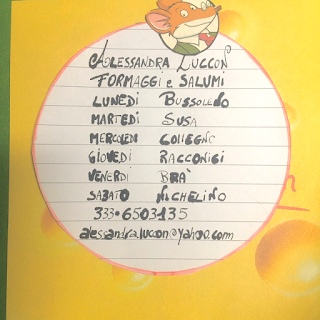 ALESSANDRA LUCCON
FORMAGGI e SALUMI
LUNEDI BUSSOLENO
MARTEDI SUSA
MERCOLEDI COLLEGNO
GIOVEDI RACCONIGI
VENERDI BRA'
SABATO NICHELINO
333•6503135
alessandra.luccon@yahoo.com